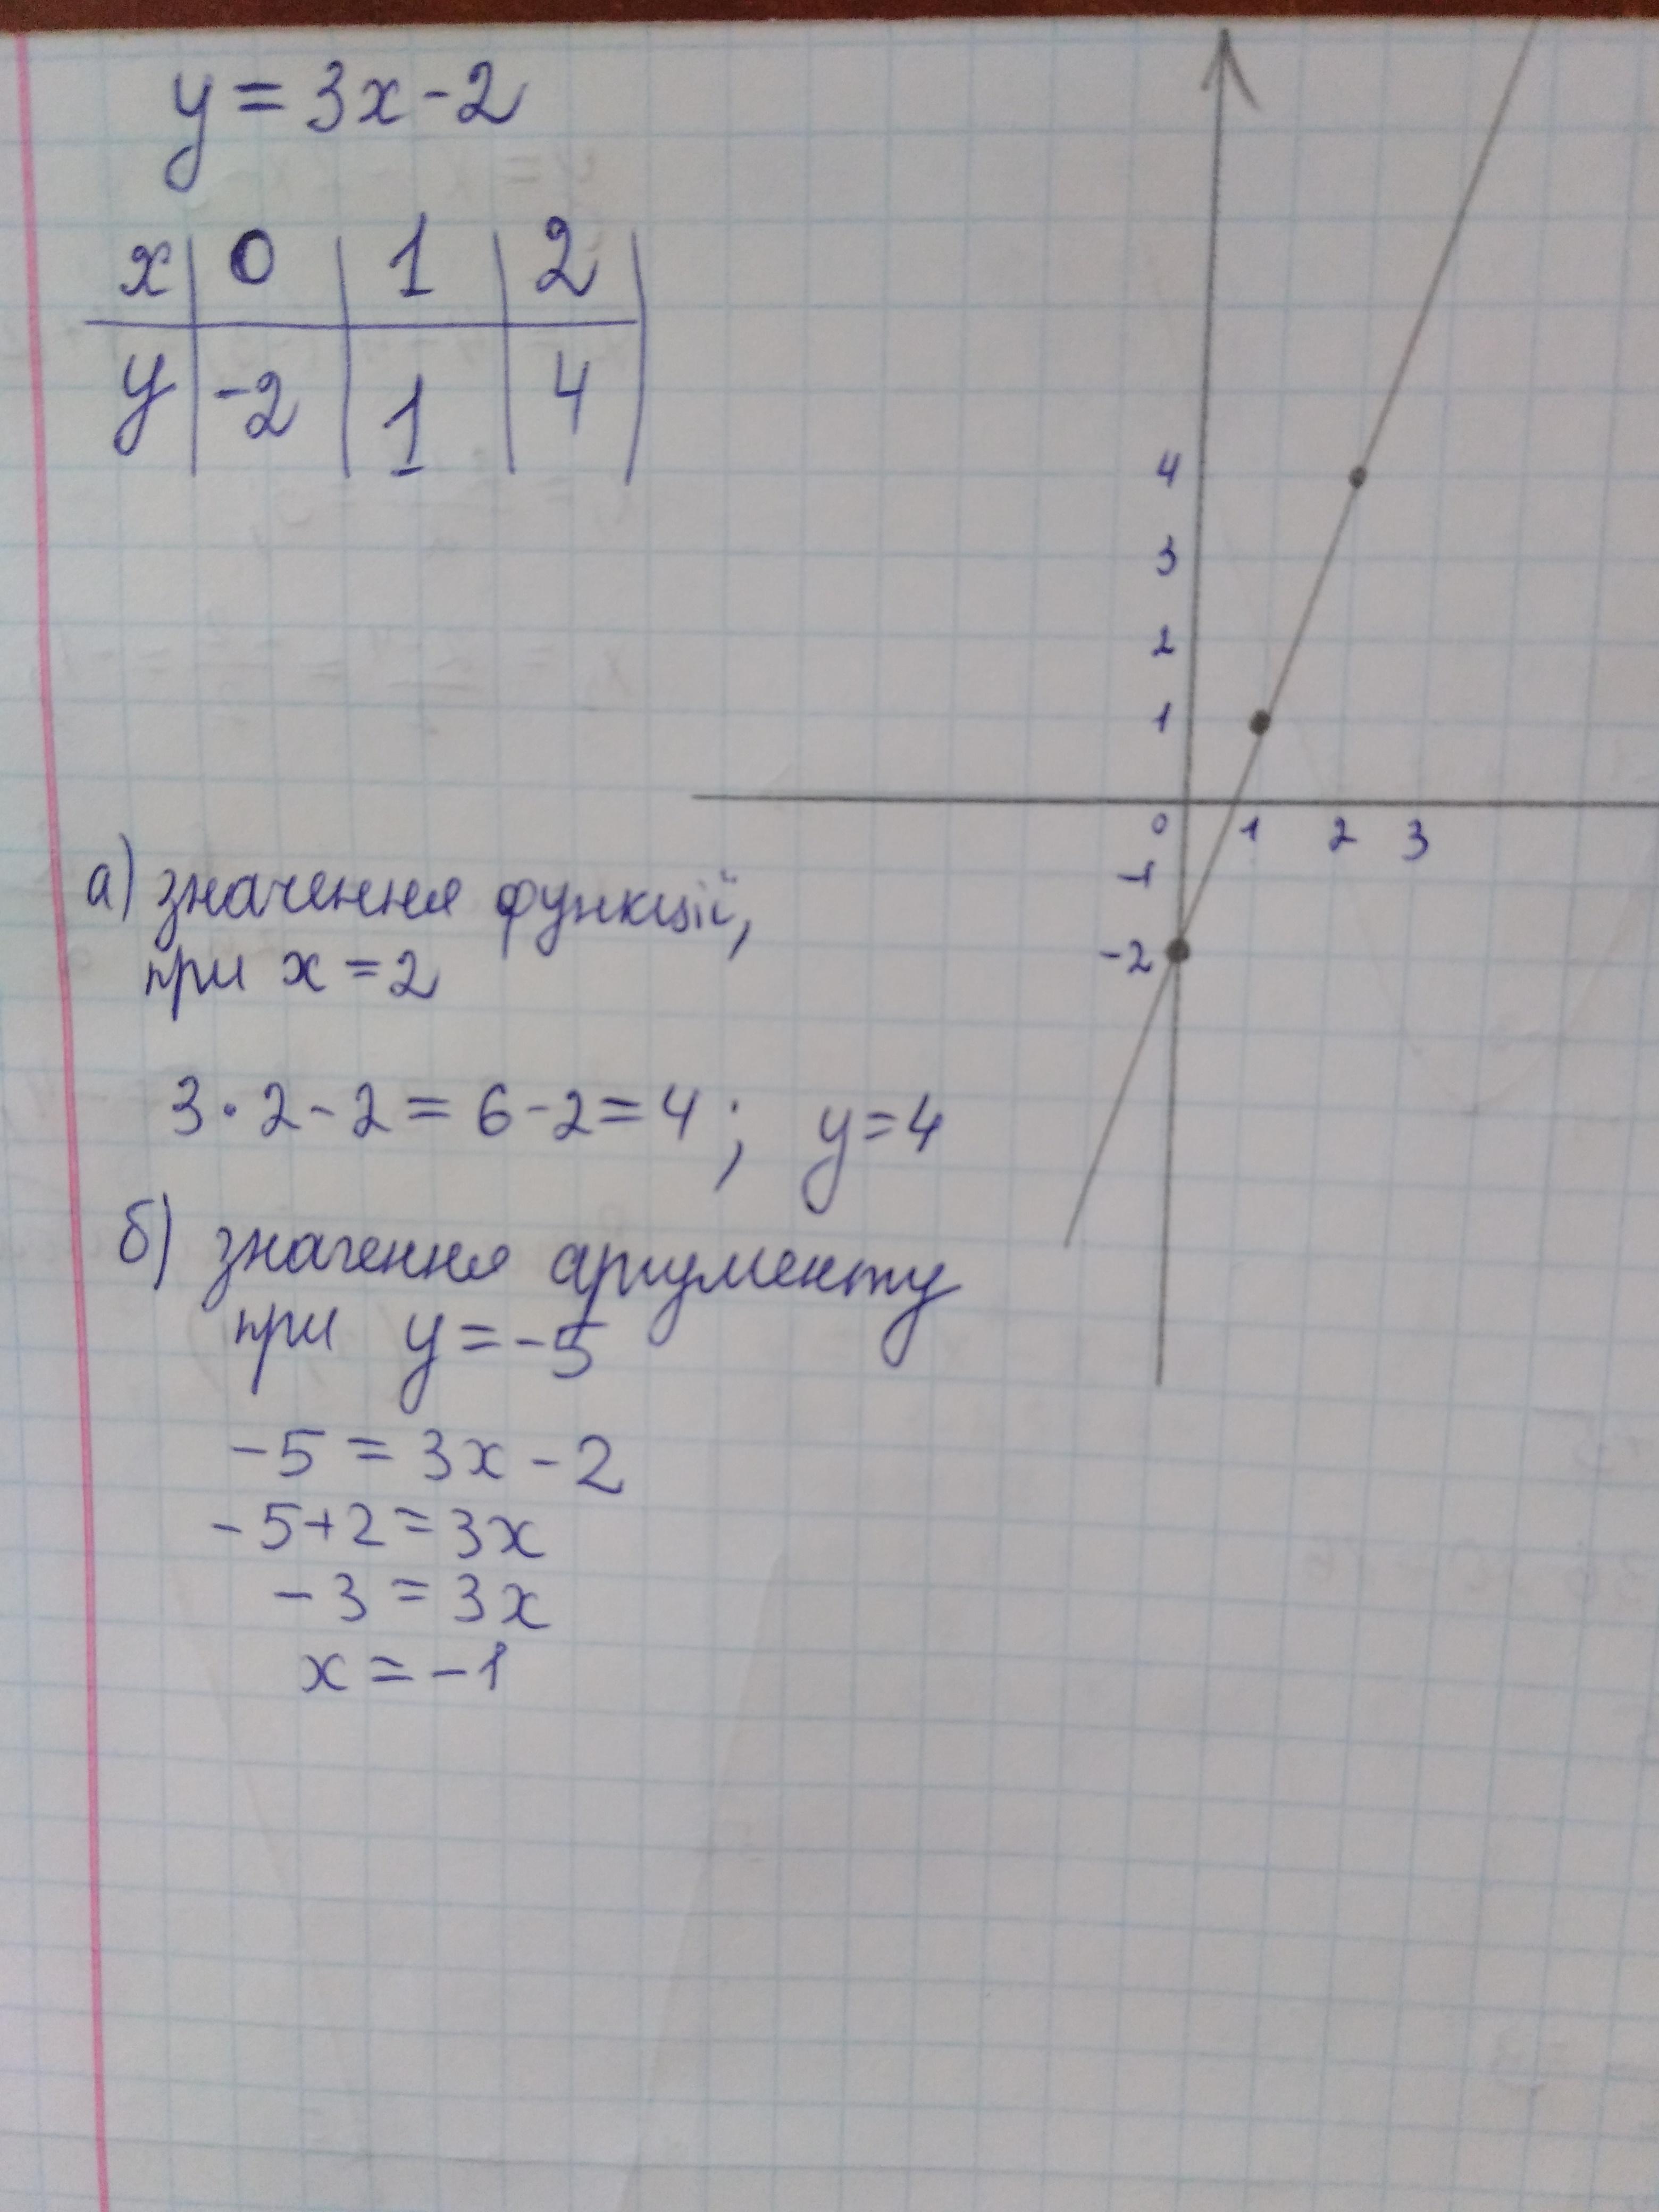 y = 3x - 2
x | 0 | 1 | 2 |
y | -2 | 1 | 4 |
4
3
2
1
0 1 2 3
-1
-2
а) значення функції,
при x = 2
3 · 2 - 2 = 6 - 2 = 4 ; y = 4
б) значення аргументу
при y = -5
-5 = 3x - 2
-5 + 2 = 3x
-3 = 3x
x = -1